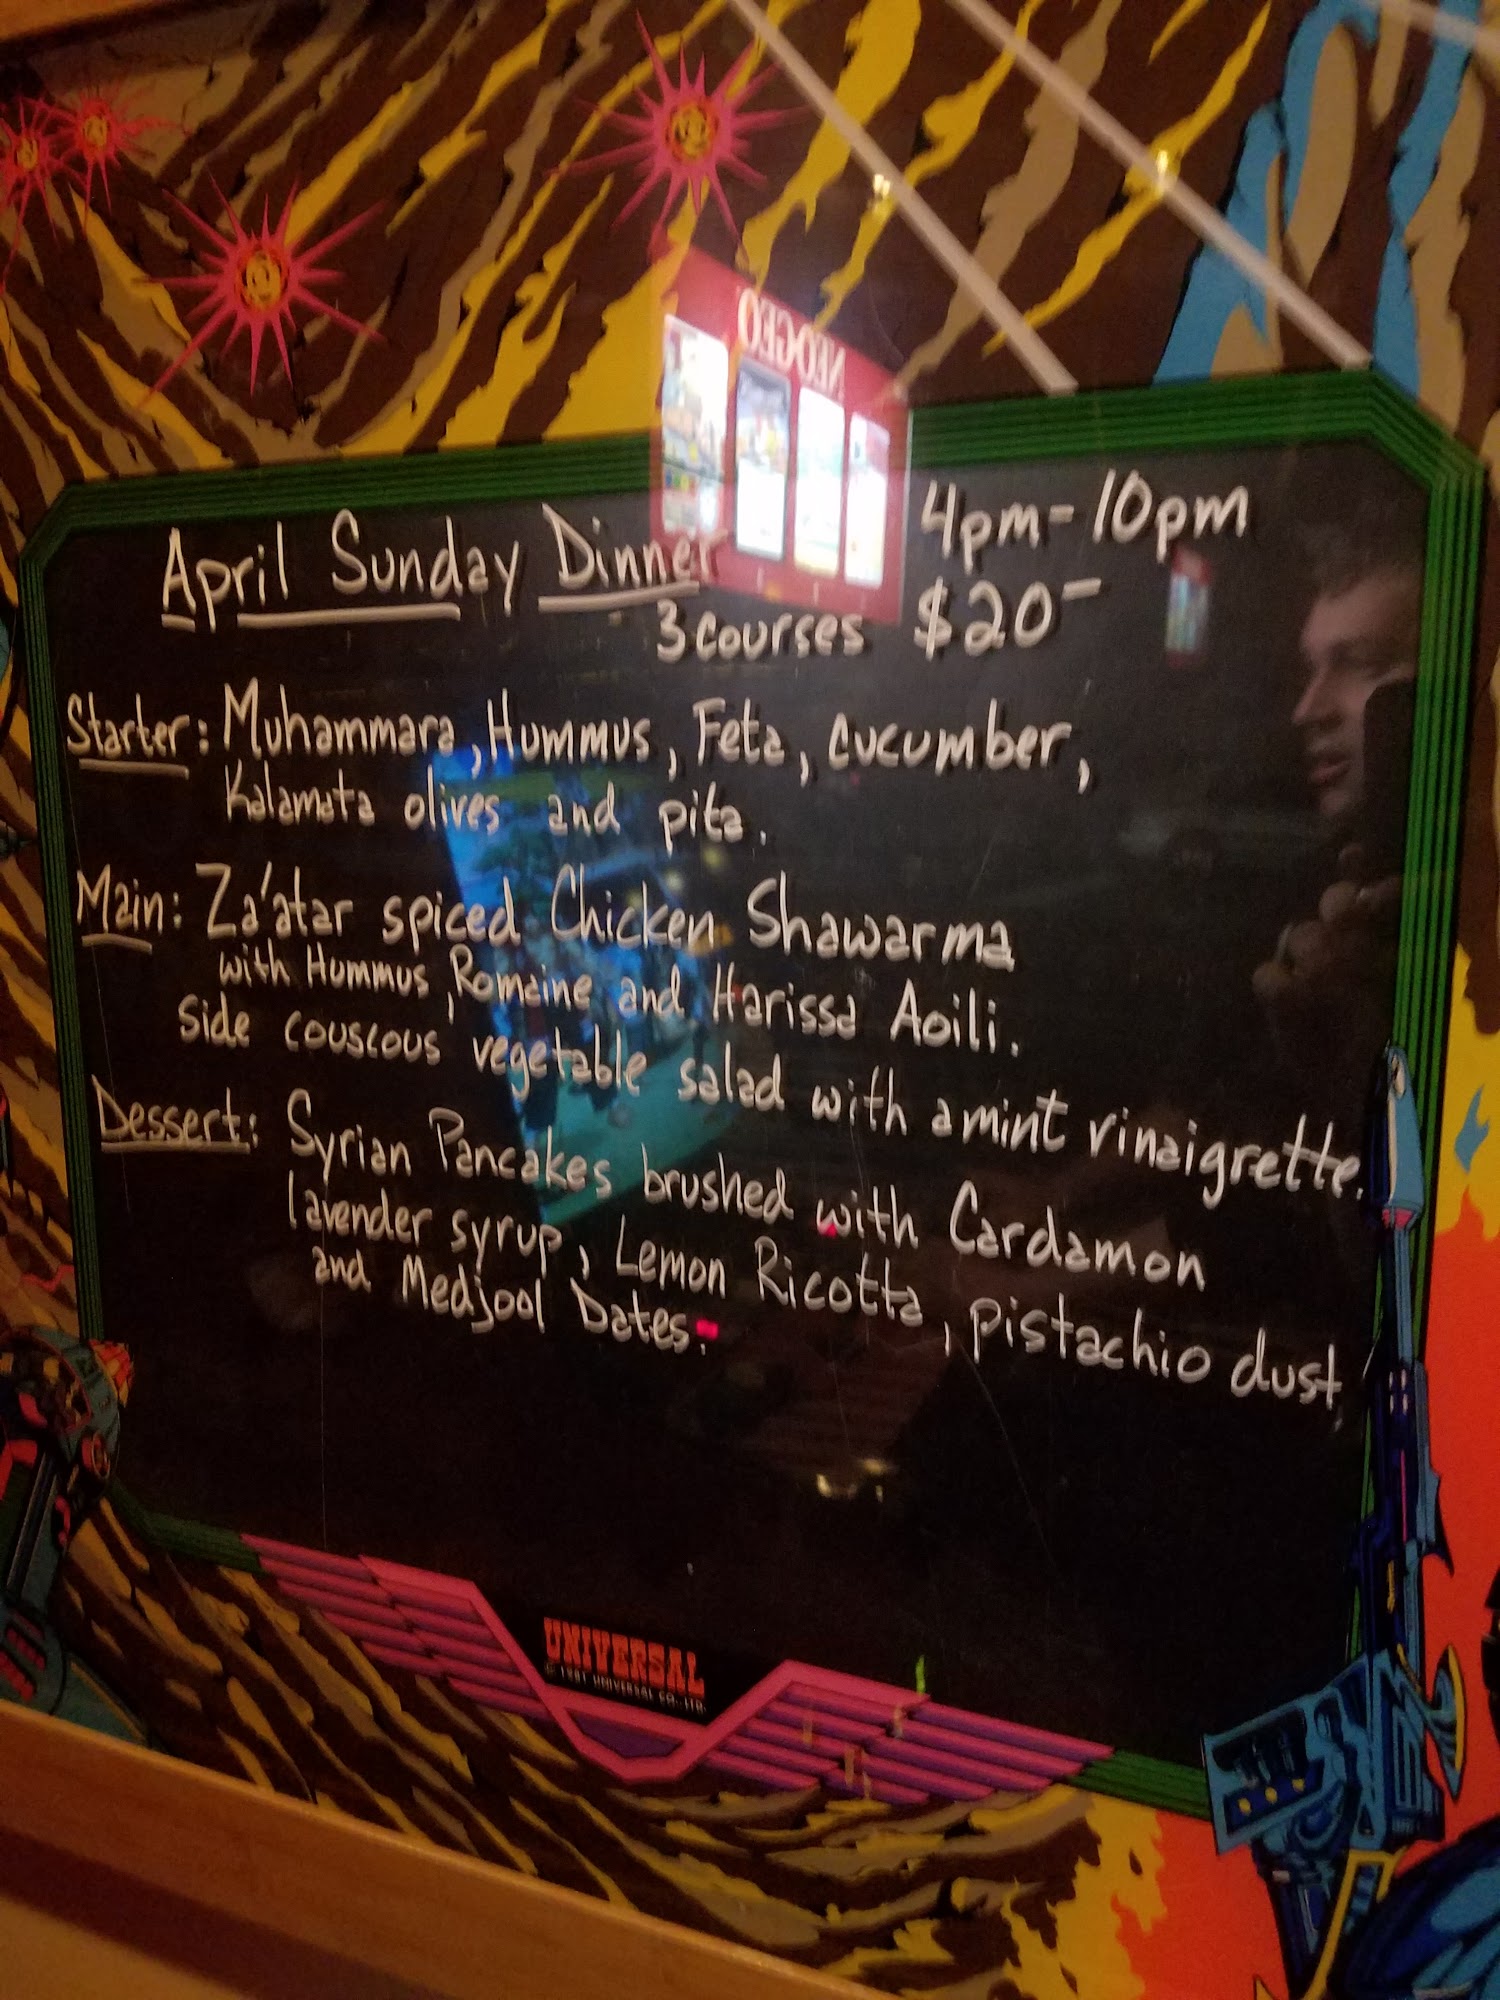 NEOGEO
April Sunday Dinner 4pm-10pm
3 courses $20-
Starter: Muhammara, Hummus, Feta, cucumber,
Kalamata olives and pita.
Main: Za'atar spiced Chicken Shawarma
with Hummus, Romaine and Harissa Aoili.
Side couscous vegetable salad with a mint vinaigrette.
Dessert: Syrian Pancakes brushed with Cardamon
lavender syrup, Lemon Ricotta, pistachio dust,
and Medjool Dates.
UNIVERSAL
© 1981 UNIVERSAL CO., LTD.